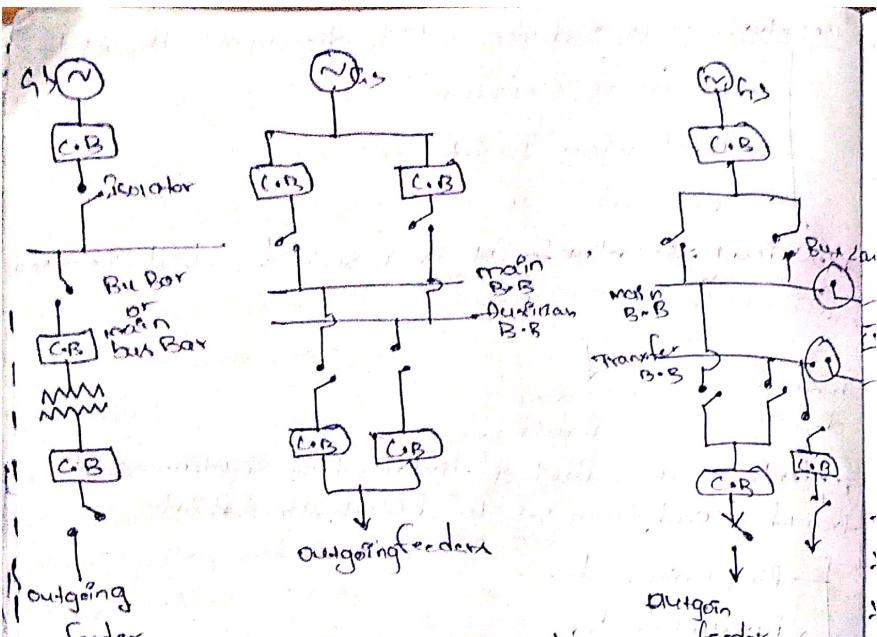 Gs
C.B
isolator
Bus Bar
or
main
bus Bar
C.B
C.B
outgoing
feeder
Gs
C.B
C.B
main
B.B
B.B
C.B
C.B
outgoing feeders
Gs
C.B
main
B.B
Transfer
B.B
C.B
C.B
outgoin
feeder